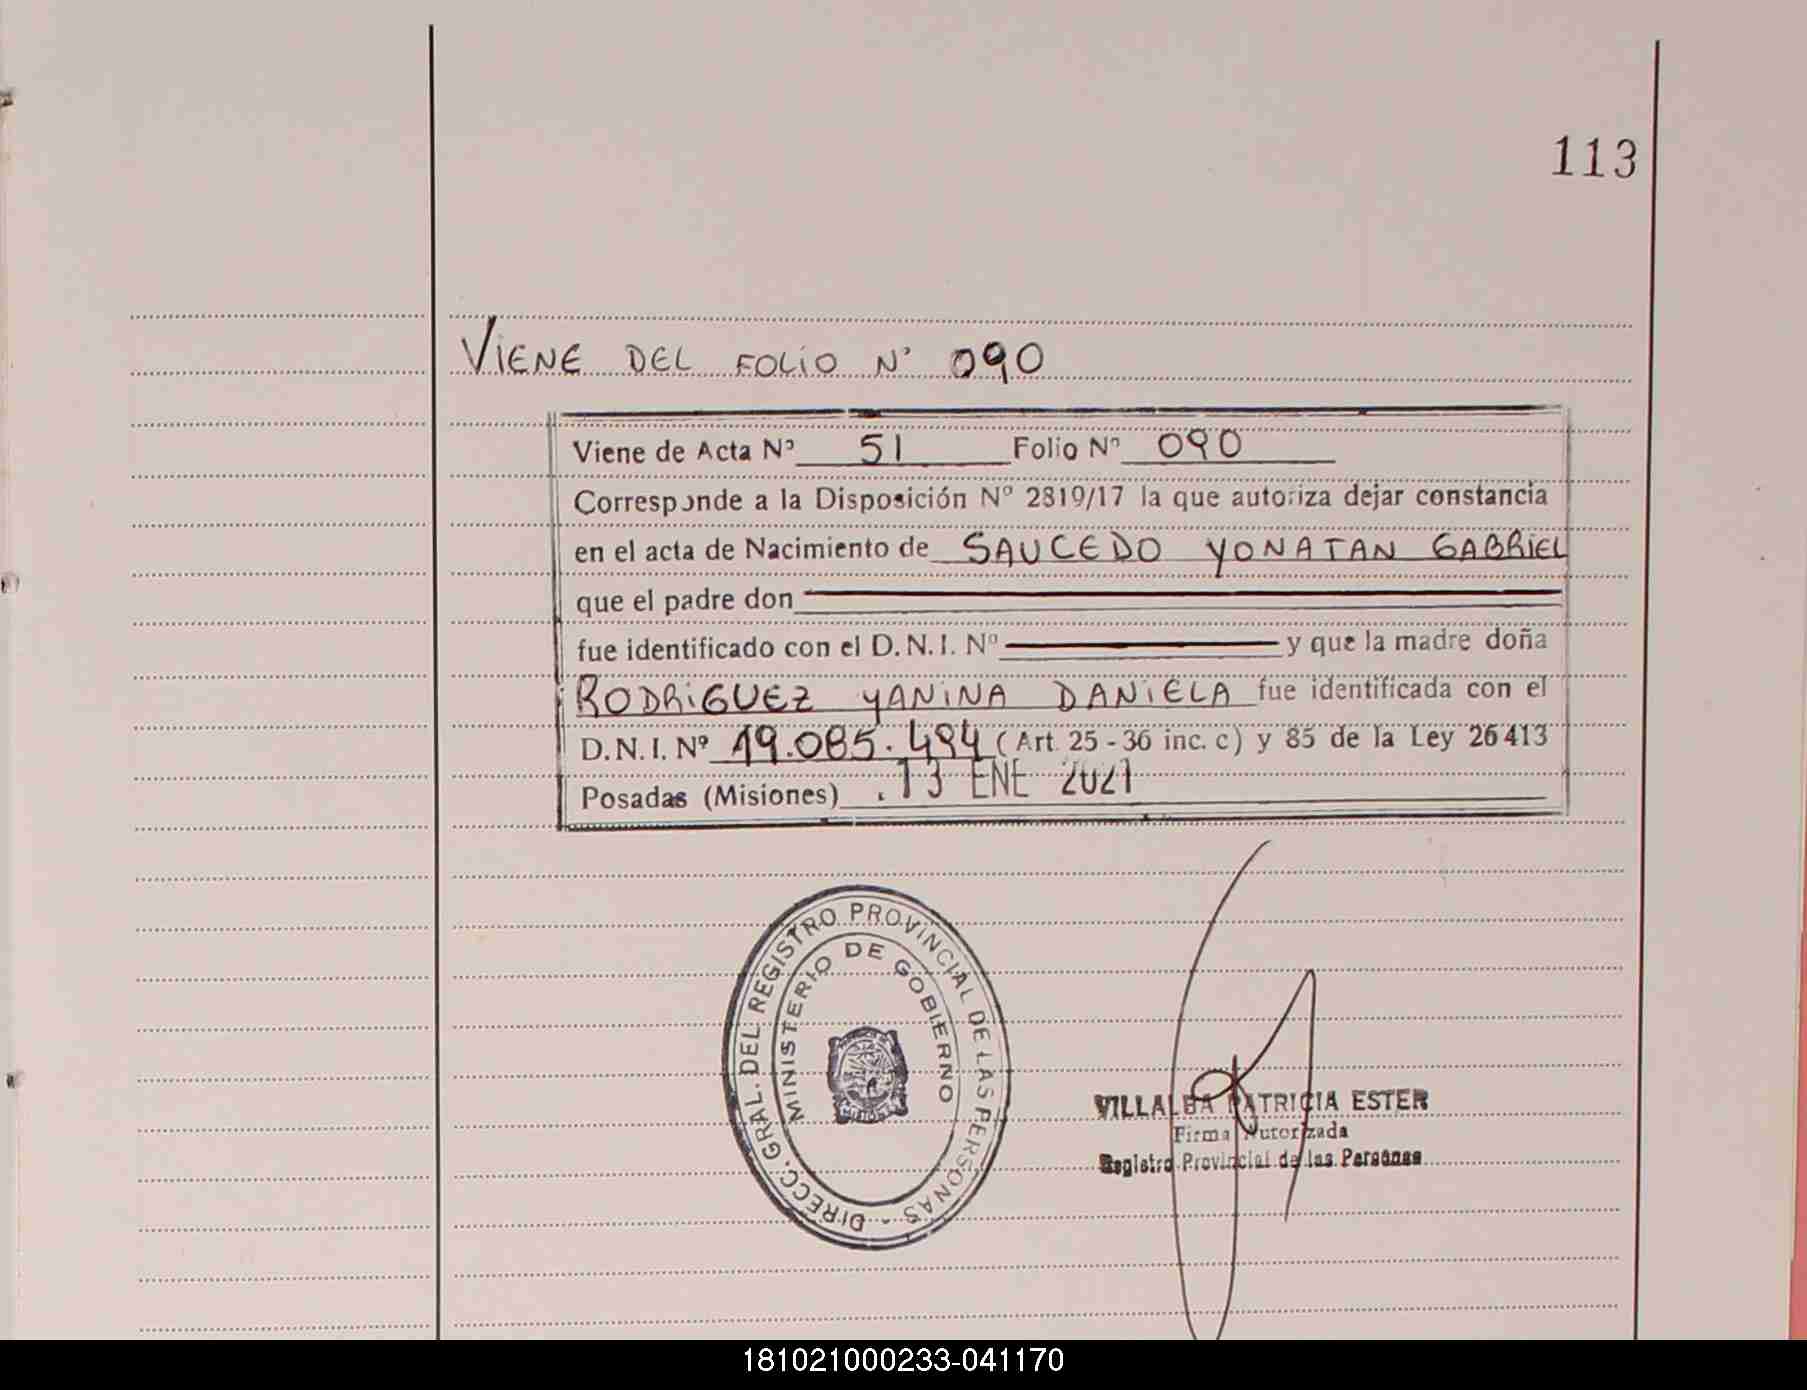 113
VIENE DEL FOLIO N° 090
Viene de Acta Nº 51 Folio Nº 090
Corresponde a la Disposición Nº 2819/17 la que autoriza dejar constancia
en el acta de Nacimiento de SAUCEDO YONATAN GABRIEL
que el padre don
fue identificado con el D.N.I. Nº y que la madre doña
RODRIGUEZ YANINA DANIELA fue identificada con el
D.N.I. Nº 19.085.494 (Art. 25 - 36 inc. c) y 85 de la Ley 26413
Posadas (Misiones) 13 ENE 2021
DIRECC. GRAL. DEL REGISTRO PROVINCIAL DE LAS PERSONAS -
MINISTERIO DE GOBIERNO
VILLALBA PATRICIA ESTER
Firma Autorizada
Registro Provincial de las Personas
181021000233-041170